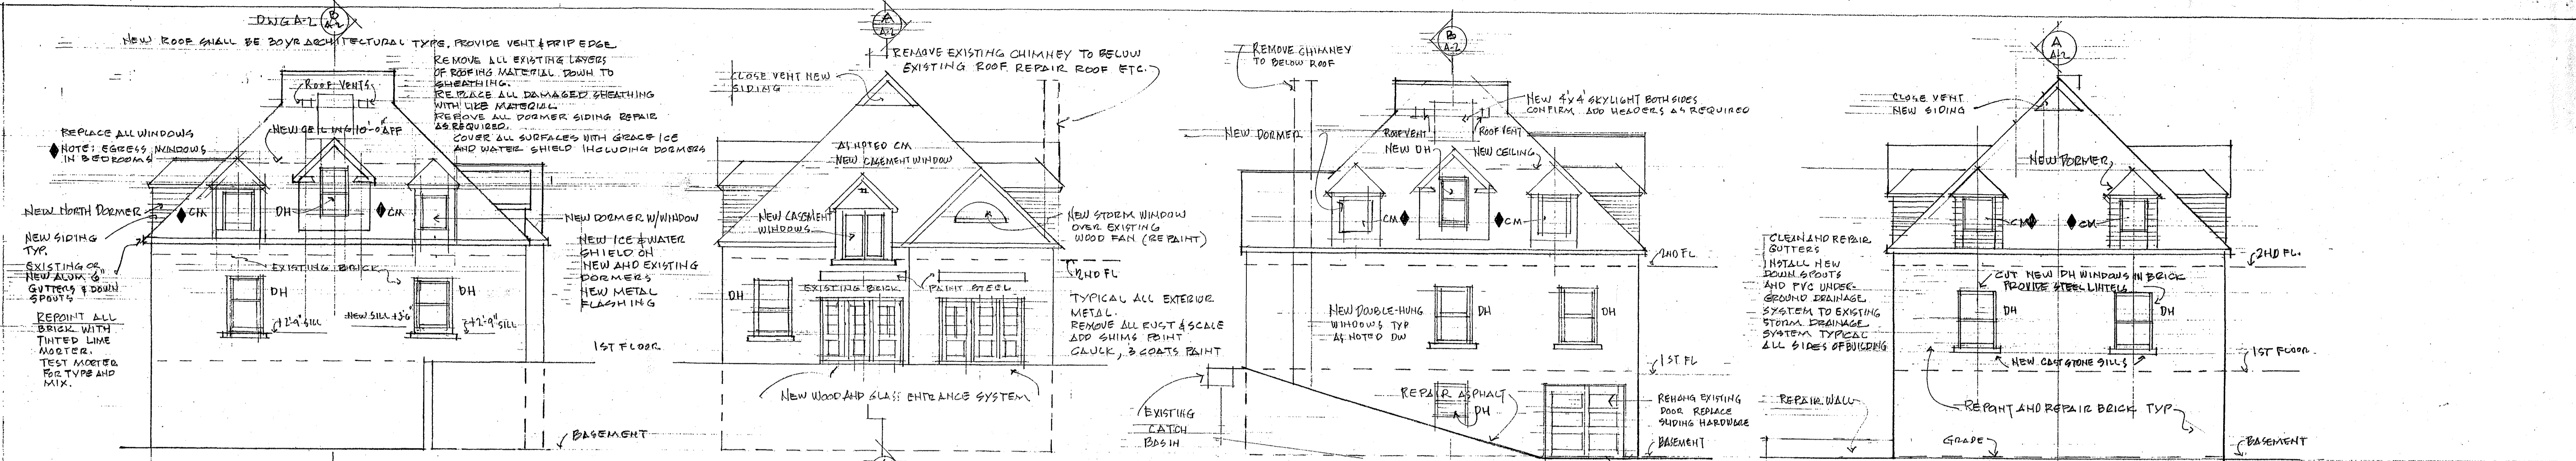 DWG A-2
B
A-2
NEW ROOF SHALL BE 30YR ARCHITECTURAL TYPE. PROVIDE VENT & DRIP EDGE
REMOVE ALL EXISTING LAYERS
OF ROOFING MATERIAL DOWN TO
SHEATHING.
REPLACE ALL DAMAGED SHEATHING
WITH LIKE MATERIAL
REMOVE ALL DORMER SIDING REPAIR
AS REQUIRED.
COVER ALL SURFACES WITH GRACE ICE
AND WATER SHIELD INCLUDING DORMERS
ROOF VENTS
REPLACE ALL WINDOWS
NOTE: EGRESS WINDOWS
IN BEDROOMS
NEW CEILING 10'-0" AFF
NEW NORTH DORMER
CM
DH
CM
NEW DORMER W/WINDOW
NEW SIDING
TYP.
EXISTING OR
NEW ALUM 6"
GUTTERS & DOWN
SPOUTS
REPOINT ALL
BRICK WITH
TINTED LIME
MORTER.
TEST MORTER
FOR TYPE AND
MIX.
EXISTING BRICK
DH
DH
+2'-9" SILL
NEW SILL +3'6"
+2'-9" SILL
NEW ICE & WATER
SHIELD ON
NEW AND EXISTING
DORMERS
NEW METAL
FLASHING
1ST FLOOR
BASEMENT
A
A-2
REMOVE EXISTING CHIMNEY TO BELOW
EXISTING ROOF. REPAIR ROOF ETC.
CLOSE VENT NEW
SIDING
AS NOTED CM
NEW CASEMENT WINDOW
NEW CASEMENT
WINDOWS
NEW STORM WINDOW
OVER EXISTING
WOOD FAN (REPAINT)
2ND FL
DH
EXISTING BRICK
PAINT STEEL
TYPICAL ALL EXTERIOR
METAL.
REMOVE ALL RUST & SCALE
ADD SHIMS POINT
CAULK, 3 COATS PAINT
NEW WOOD AND GLASS ENTRANCE SYSTEM
B
A-2
REMOVE CHIMNEY
TO BELOW ROOF
NEW 4'x4' SKYLIGHT BOTH SIDES
CONFIRM ADD HEADERS AS REQUIRED
NEW DORMER
ROOF VENT
ROOF VENT
NEW DH
NEW CEILING
CM
CM
2ND FL
NEW DOUBLE-HUNG
WINDOWS TYP
AS NOTED DW
DH
DH
1ST FL
REPAIR ASPHALT
DH
EXISTING
CATCH
BASIN
REHUNG EXISTING
DOOR REPLACE
SLIDING HARDWARE
BASEMENT
A
A-2
CLOSE VENT
NEW SIDING
NEW DORMER
CM
CM
CLEAN AND REPAIR
GUTTERS
INSTALL NEW
DOWN SPOUTS
AND PVC UNDER-
GROUND DRAINAGE
SYSTEM TO EXISTING
STORM DRAINAGE
SYSTEM TYPICAL
ALL SIDES OF BUILDING
2ND FL.
CUT NEW DH WINDOWS IN BRICK
PROVIDE STEEL LINTELS
DH
DH
1ST FLOOR
NEW CAST STONE SILLS
REPAIR WALL
REPOINT AND REPAIR BRICK TYP
GRADE
BASEMENT